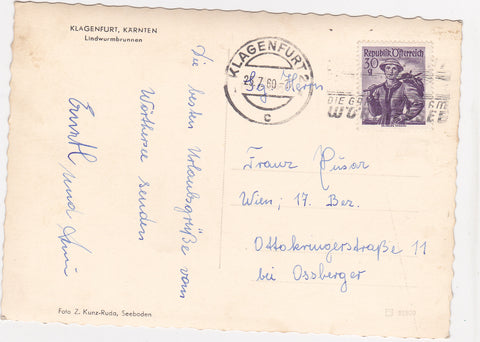 KLAGENFURT, KÄRNTEN
Lindwurmbrunnen
Die besten Urlaubsgrüße vom
Wörthersee senden
Ernstl und
KLAGENFURT 2
7.60
c
Republik Österreich
30 g
DIE
Sg. Herrn
Franz Husar
Wien, 17. Bez.
Ottakringerstraße 11
bei Ossberger
Foto Z. Kunz-Ruda, Seeboden